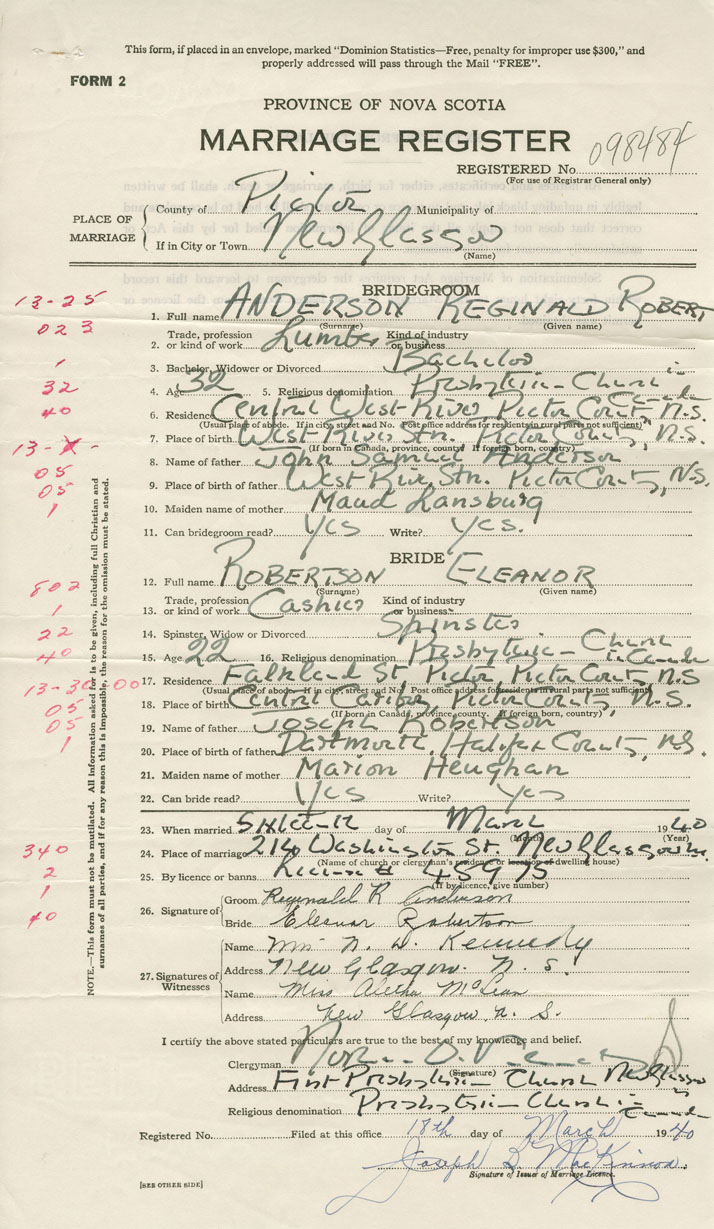 This form, if placed in an envelope, marked "Dominion Statistics—Free, penalty for improper use $300," and
properly addressed will pass through the Mail "FREE".
FORM 2
PROVINCE OF NOVA SCOTIA
MARRIAGE REGISTER
REGISTERED No. 098484
(For use of Registrar General only)
PLACE OF MARRIAGE
County of Pictou Municipality of
If in City or Town New Glasgow
(Name)
BRIDEGROOM
13-25
1. Full name ANDERSON REGINALD ROBERT
(Surname) (Given name)
023
Trade, profession Kind of industry
2. or kind of work Lumber or business
1
3. Bachelor, Widower or Divorced Bachelor
32
4. Age 32 5. Religious denomination Presbyterian Church in Canada
40
6. Residence Central West River Pictou County N.S.
(Usual place of abode. If in city, street and No. Post office address for residents in rural parts not sufficient)
13-X-
7. Place of birth West River Stn. Pictou County, N.S.
(If born in Canada, province, county. If foreign born, country)
05
8. Name of father John Samuel Anderson
05
9. Place of birth of father West River Stn. Pictou County, N.S.
1
10. Maiden name of mother Maud Lansburg
11. Can bridegroom read? Yes Write? Yes.
BRIDE
802
12. Full name ROBERTSON ELEANOR
(Surname) (Given name)
1
Trade, profession Kind of industry
13. or kind of work Cashier or business
22
14. Spinster, Widow or Divorced Spinster
40
15. Age 22 16. Religious denomination Presbyterian Church in Canada
13-30 00
17. Residence Falkland St, Pictou, Pictou County N.S
(Usual place of abode. If in city, street and No. Post office address for residents in rural parts not sufficient)
05
18. Place of birth Central Caribou, Pictou County, N.S.
(If born in Canada, province, county. If foreign born, country)
05
19. Name of father Joseph Robertson
1
20. Place of birth of father Dartmouth, Halifax County, N.S.
21. Maiden name of mother Marion Heughan
22. Can bride read? Yes Write? Yes
23. When married day of March 1940
(Month) (Year)
340
24. Place of marriage 214 Washington St. New Glasgow
(Name of church or clergyman's residence or location of dwelling house)
2
25. By licence or banns License # 45975
(If by licence, give number)
1
40
26. Signature of
Groom Reginald R Anderson
Bride Eleanor Robertson
27. Signatures of Witnesses
Name Mrs N. D. Kennedy
Address New Glasgow. N. S.
Name Miss Aletha McLean
Address New Glasgow, N. S.
I certify the above stated particulars are true to the best of my knowledge and belief.
Clergyman
(Signature)
Address First Presbyterian Church New Glasgow
Religious denomination Presbyterian Church in Canada
Registered No. Filed at this office 18th day of March 1940
Joseph B. MacKinnon
Signature of Issuer of Marriage Licence.
[SEE OTHER SIDE]
NOTE.—This form must not be mutilated. All information asked for is to be given, including full Christian and
surnames of all parties, and if for any reason this is impossible, the reason for the omission must be stated.